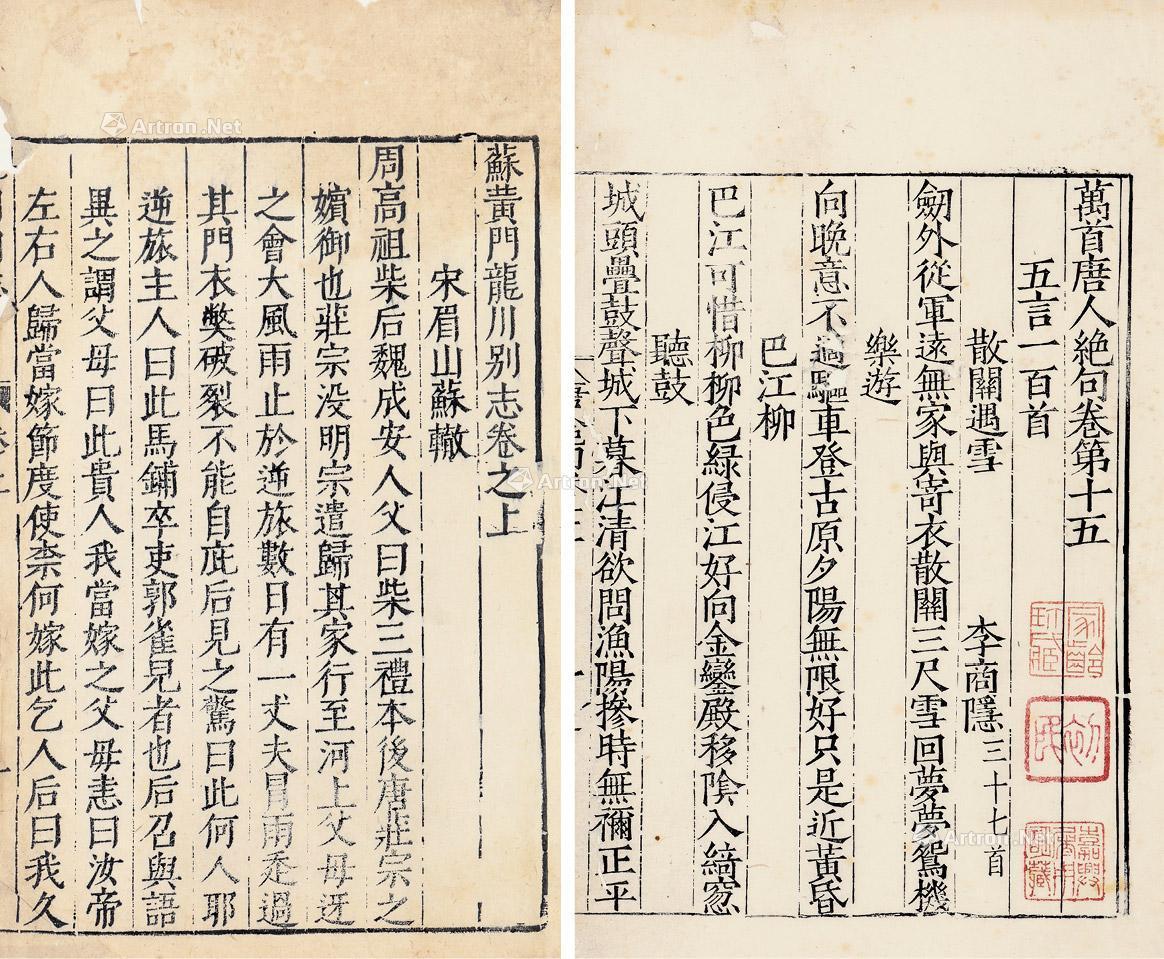 萬首唐人絶句卷第十五
五言一百首
散關遇雪 李商隱三十七首
劒外從軍遠無家與寄衣散關三尺雪回夢夢鴛機
樂遊
向晚意不適驅車登古原夕陽無限好只是近黃昏
巴江柳
巴江可惜柳柳色綠侵江好向金鑾殿移隂入綺窓
聽鼓
城頭疊鼓聲城下暮江清欲問漁陽摻時無禰正平
蘇黃門龍川别志卷之上
宋眉山蘇轍
周高祖柴后魏成安人父曰柴三禮本後唐莊宗之
嬪御也莊宗没明宗遣歸其家行至河上父母迓
之會大風雨止於逆旅數日有一丈夫冒雨走過
其門衣獘破裂不能自庇后見之驚曰此何人耶
逆旅主人曰此馬鋪卒吏郭雀兒者也后召與語
異之謂父母曰此貴人我當嫁之父母恚曰汝帝
左右人歸當嫁節度使柰何嫁此乞人后曰我久
Artron.Net
Artron.Net
Artron.Net